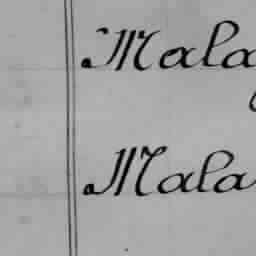 Mala
Mala